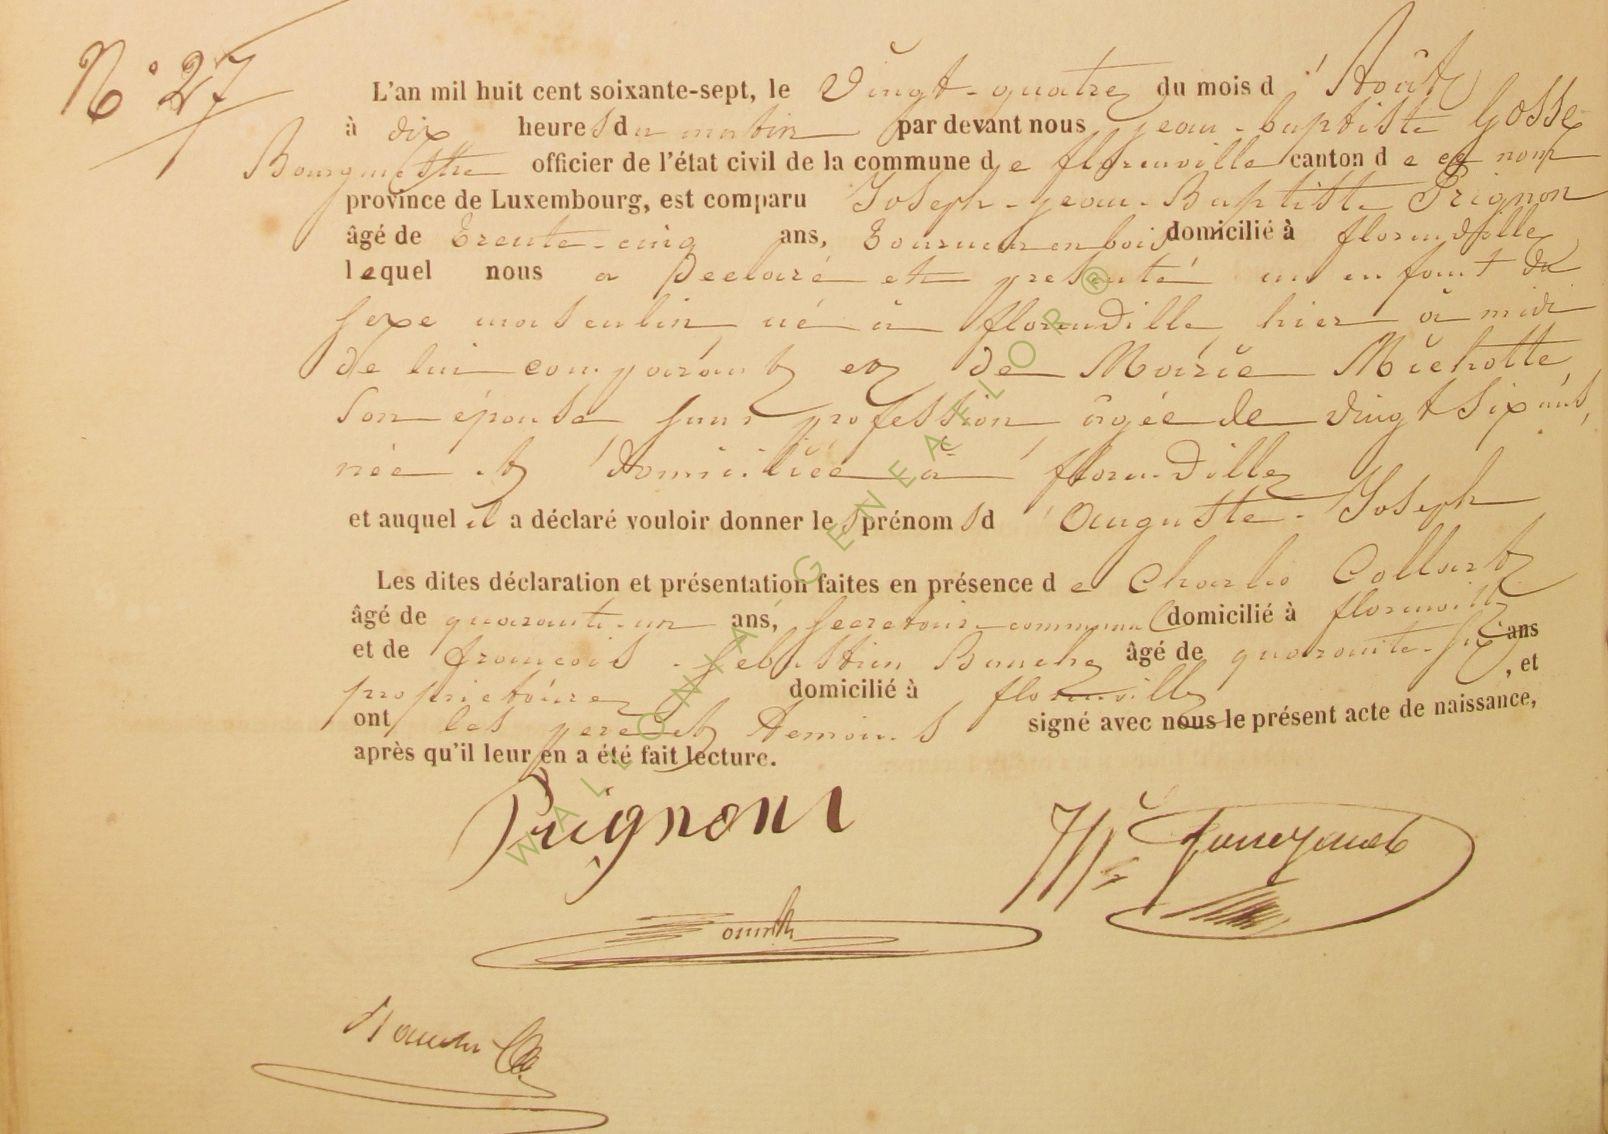 N° 27
L'an mil huit cent soixante-sept, le Vingt-quatre du mois d'Août
à dix heures du matin par devant nous jean-baptiste Gosse
Bourgmestre officier de l'état civil de la commune de florenville canton de ce nom
province de Luxembourg, est comparu Joseph-jean-Baptiste Prignon
âgé de Trente-cinq ans, Tourneur en bois domicilié à florenville
lequel nous a Declaré et presenté un enfant du
sexe masculin né à florenville hier à midi
de lui comparant et de Marie Michotte
son épouse sans profession âgée de vingt six ans,
née et domiciliée à florenville
et auquel il a déclaré vouloir donner les prénoms d Auguste-Joseph
Les dites déclaration et présentation faites en présence de Charles Collart
âgé de quarante-un ans, secretaire communal domicilié à florenville
et de françois-sebastien âgé de quarante-six ans
proprietaire domicilié à florenville, et
ont les pere et temoins signé avec nous le présent acte de naissance,
après qu'il leur en a été fait lecture.
Prignon
WALLONIA GENEAFLOR ®